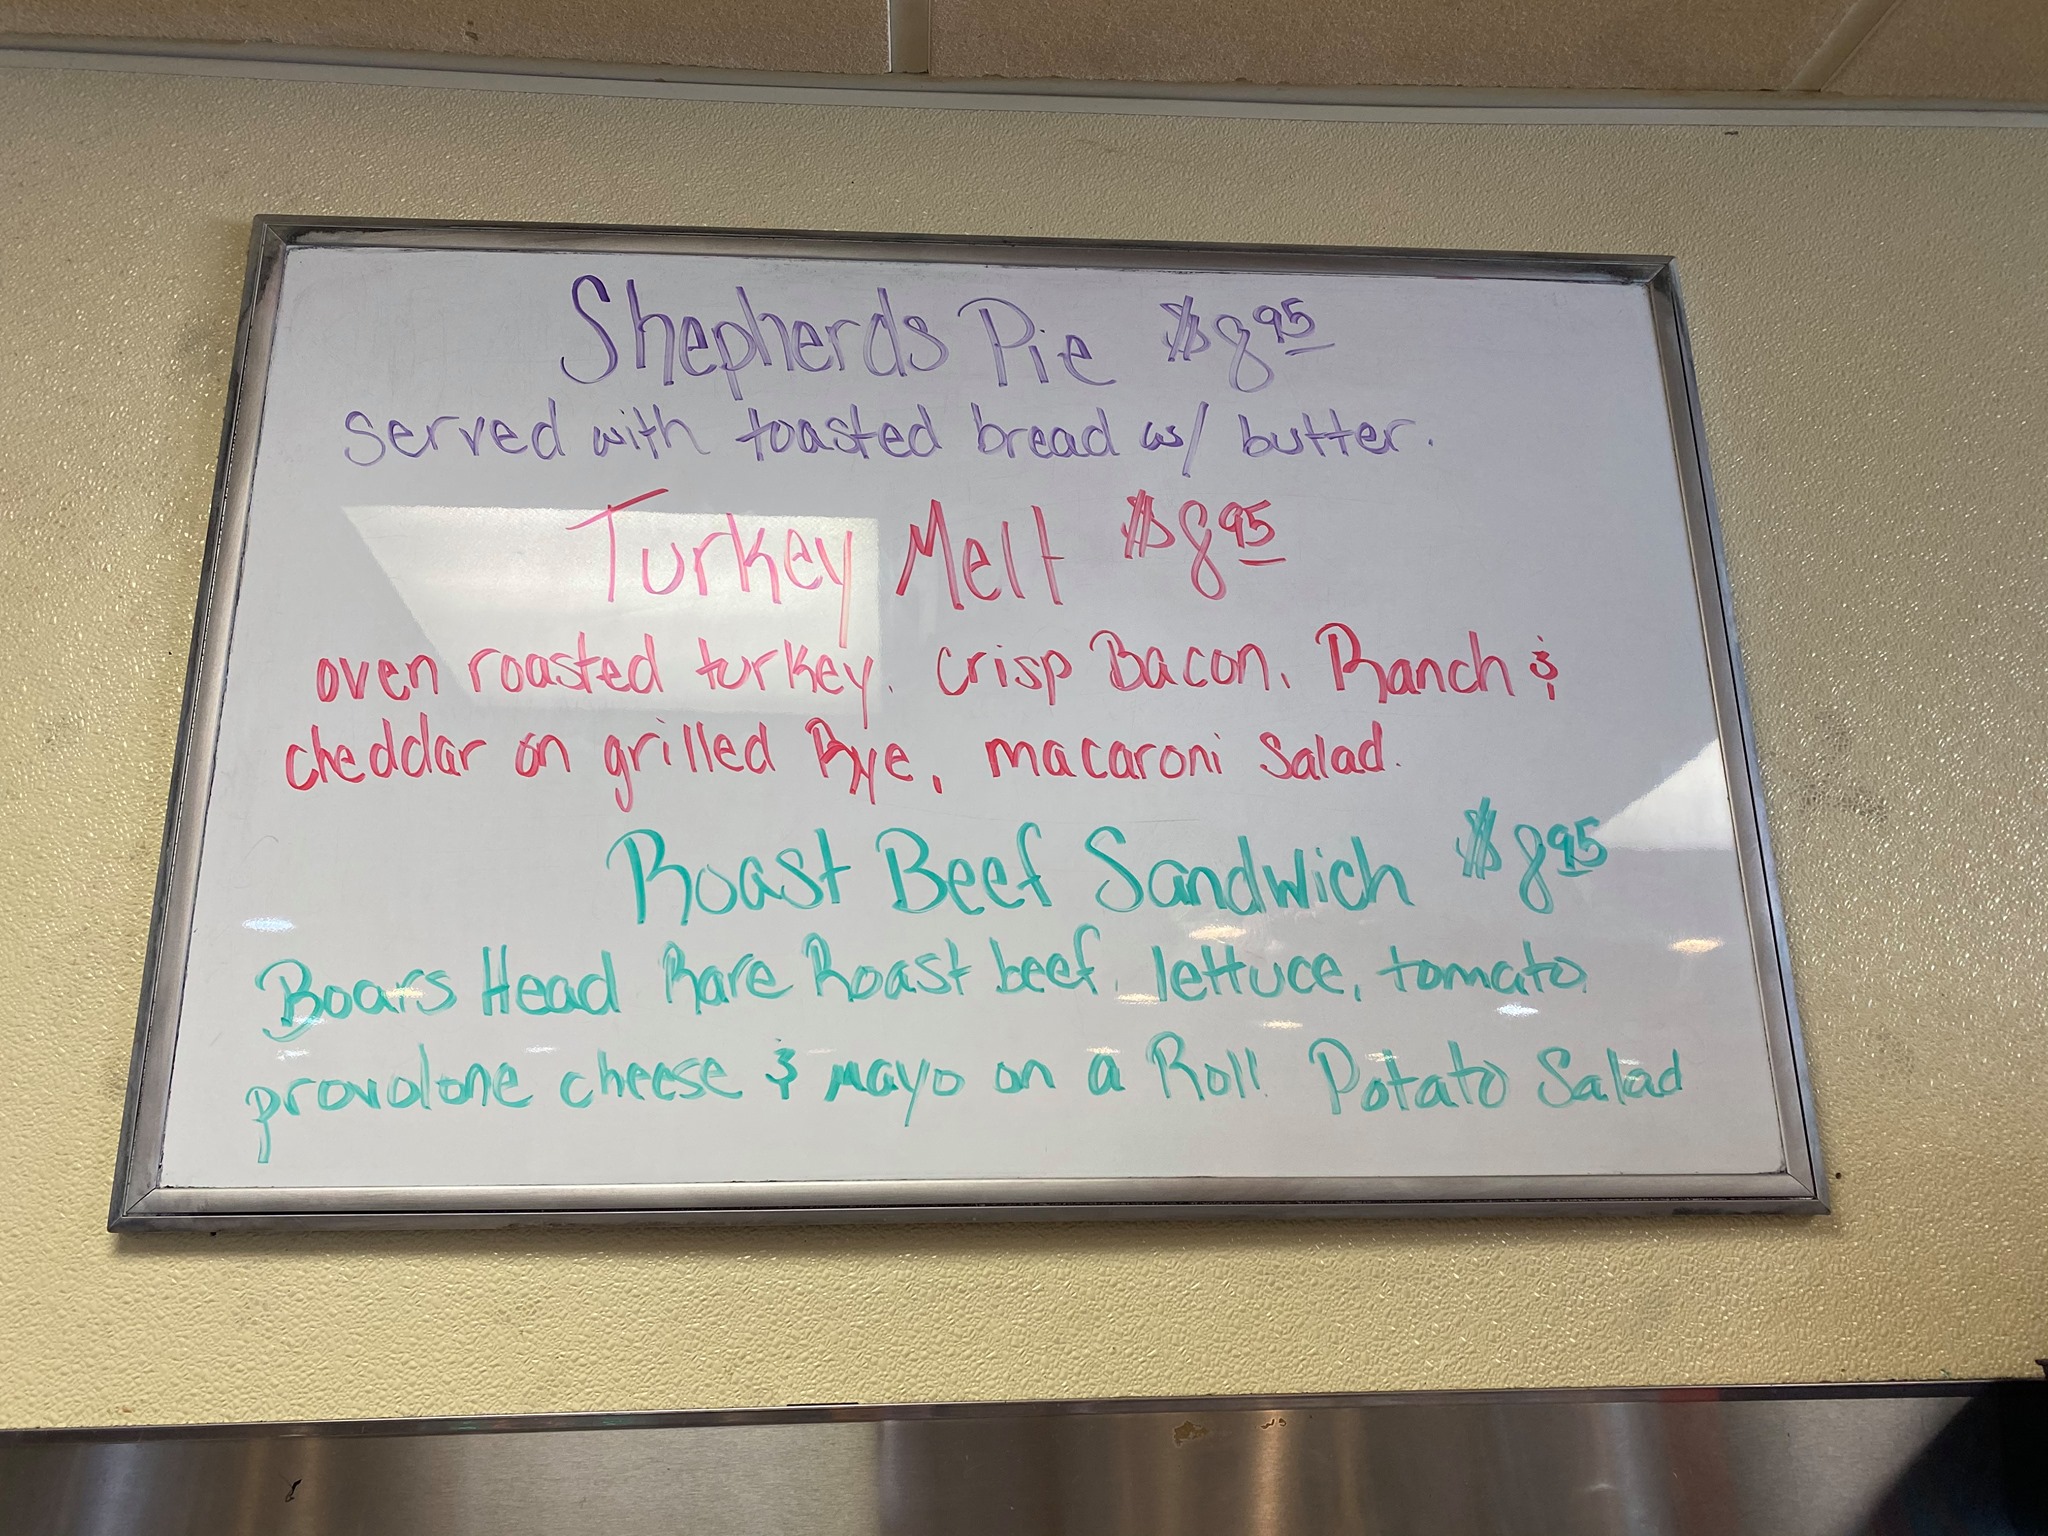 Shepherds Pie $8.95
served with toasted bread w/ butter.
Turkey Melt $8.95
oven roasted turkey, crisp Bacon, Ranch &
cheddar on grilled Rye, macaroni salad.
Roast Beef Sandwich $8.95
Boars Head Rare Roast beef, lettuce, tomato,
provolone cheese & mayo on a Roll! Potato Salad